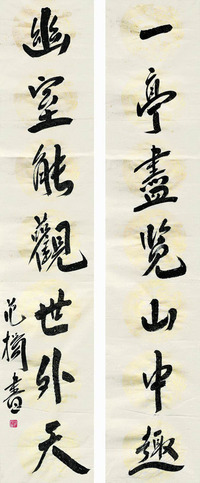 一亭盡覽山中趣
幽室能觀世外天
范摘書